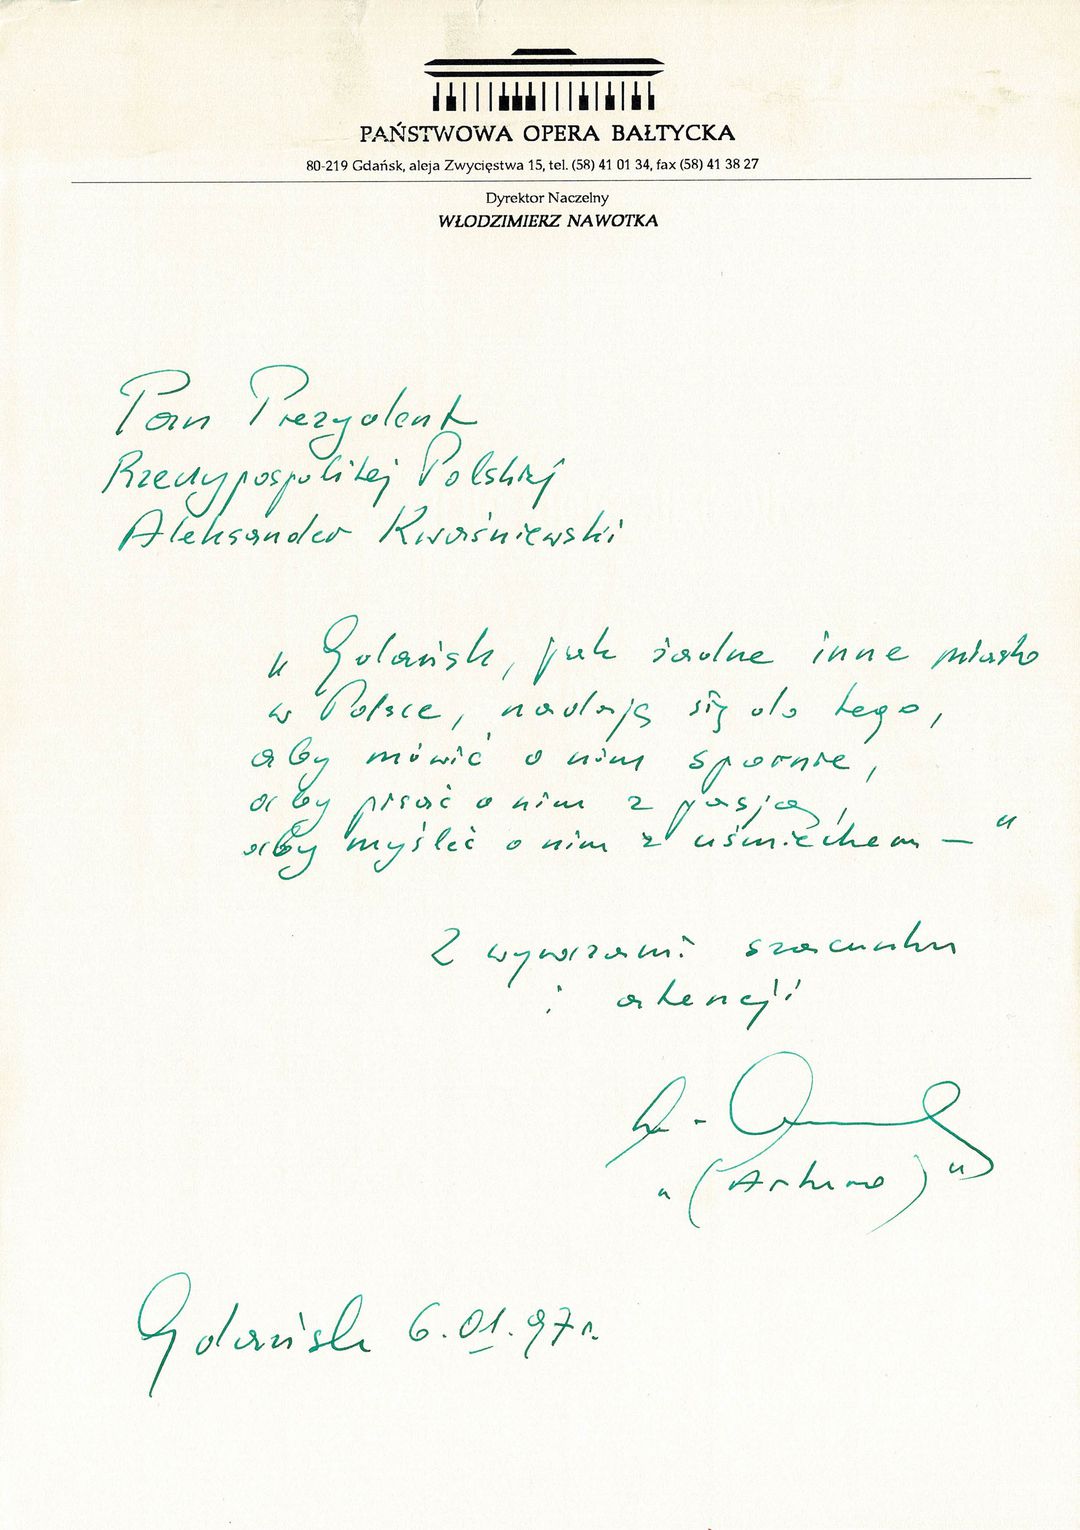 PAŃSTWOWA OPERA BAŁTYCKA
80-219 Gdańsk, aleja Zwycięstwa 15, tel. (58) 41 01 34, fax (58) 41 38 27
Dyrektor Naczelny
WŁODZIMIERZ NAWOTKA
Pan Prezydent
Rzeczypospolitej Polskiej
Aleksander Kwaśniewski
"Gdańsk, jak żadne inne miasto
w Polsce, nadają się do tego,
aby mówić o nim spornie,
aby pisać o nim z pasją,
aby myśleć o nim z uśmiechem – "
Z wyrazami szacunku
i atencji
"( )"
Gdańsk 6.01.97 r.